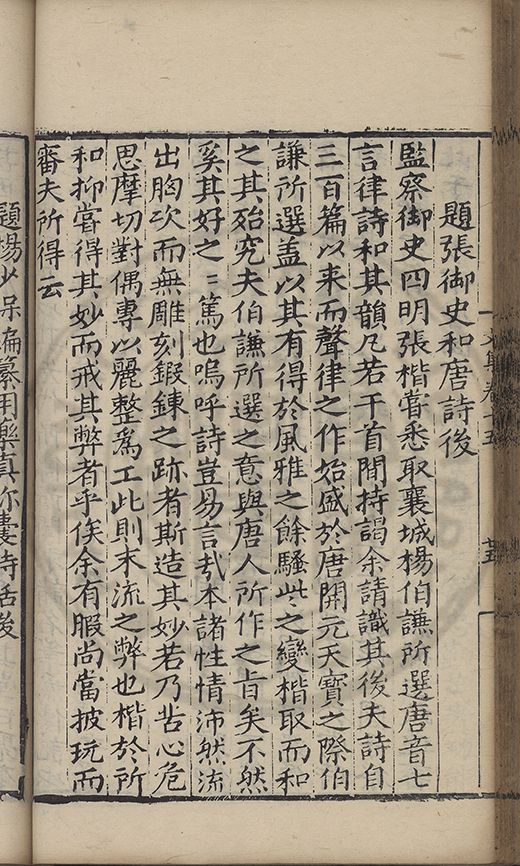 題張御史和唐詩後
監察御史四明張楷嘗悉取襄城楊伯謙所選唐音七
言律詩和其韻凡若干首間持謁余請識其後夫詩自
三百篇以來而聲律之作始盛於唐開元天寶之際伯
謙所選盖以其有得於風雅之餘騷些之變楷取而和
之其殆究夫伯謙所選之意與唐人所作之旨矣不然
奚其好之〻篤也嗚呼詩豈易言哉本諸性情沛然流
出胸次而無雕刻鍛鍊之跡者斯造其妙若乃苦心危
思摩切對偶專以麗整爲工此則末流之弊也楷於所
和抑嘗得其妙而戒其弊者乎俟余有暇尚當披玩而
審夫所得云
文集卷十五
七五